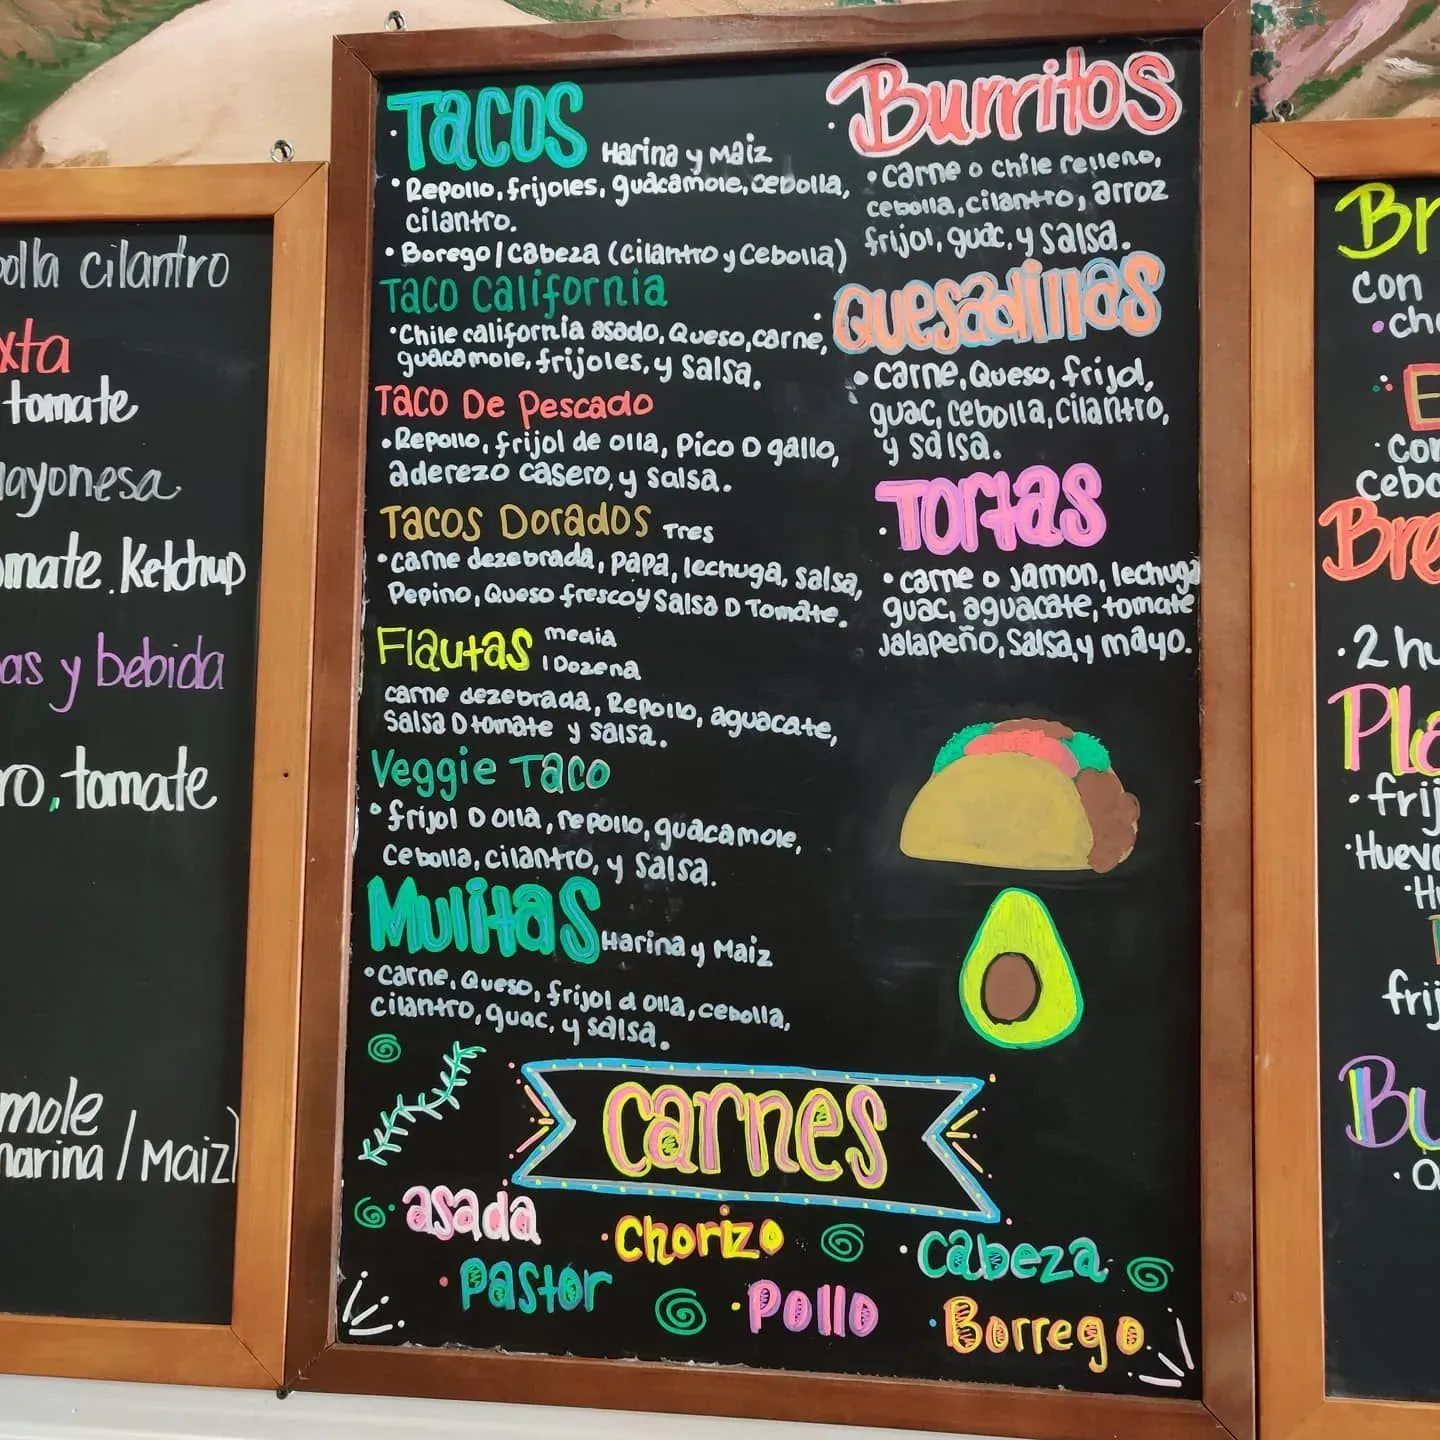 olla cilantro
xta
tomate
ayonesa
omate. Ketchup
as y bebida
ro, tomate
mole
harina / Maiz)
Tacos Harina y Maiz
• Repollo, frijoles, guacamole, cebolla,
cilantro.
• Borego / Cabeza (cilantro y Cebolla)
Taco California
• Chile california asado, Queso, carne,
guacamole, frijoles, y Salsa.
Taco De Pescado
• Repollo, frijol de olla, Pico D gallo,
aderezo casero, y salsa.
Tacos Dorados Tres
• carne dezebrada, papa, lechuga, salsa,
Pepino, Queso fresco y Salsa D Tomate.
Flautas media
1 Dozena
carne dezebrada, Repollo, aguacate,
Salsa D tomate y salsa.
Veggie Taco
• frijol D olla, repollo, guacamole,
Cebolla, cilantro, y salsa.
Mulitas Harina y Maiz
• Carne, Queso, frijol d olla, cebolla,
cilantro, guac, y salsa.
Burritos
• Carne o chile relleno,
cebolla, cilantro, arroz
frijol, guac, y salsa.
Quesadillas
• Carne, Queso, frijol,
guac, cebolla, cilantro,
y salsa.
Tortas
• carne o jamon, lechuga
guac, aguacate, tomate
jalapeño, salsa, y mayo.
Carnes
asada
Chorizo
Cabeza
Pastor
Pollo
Borrego
Br
con
• ch
E
• Con
cebo
Bre
• 2 hu
Pla
• frij
• Huevo
• H
frij
Bu